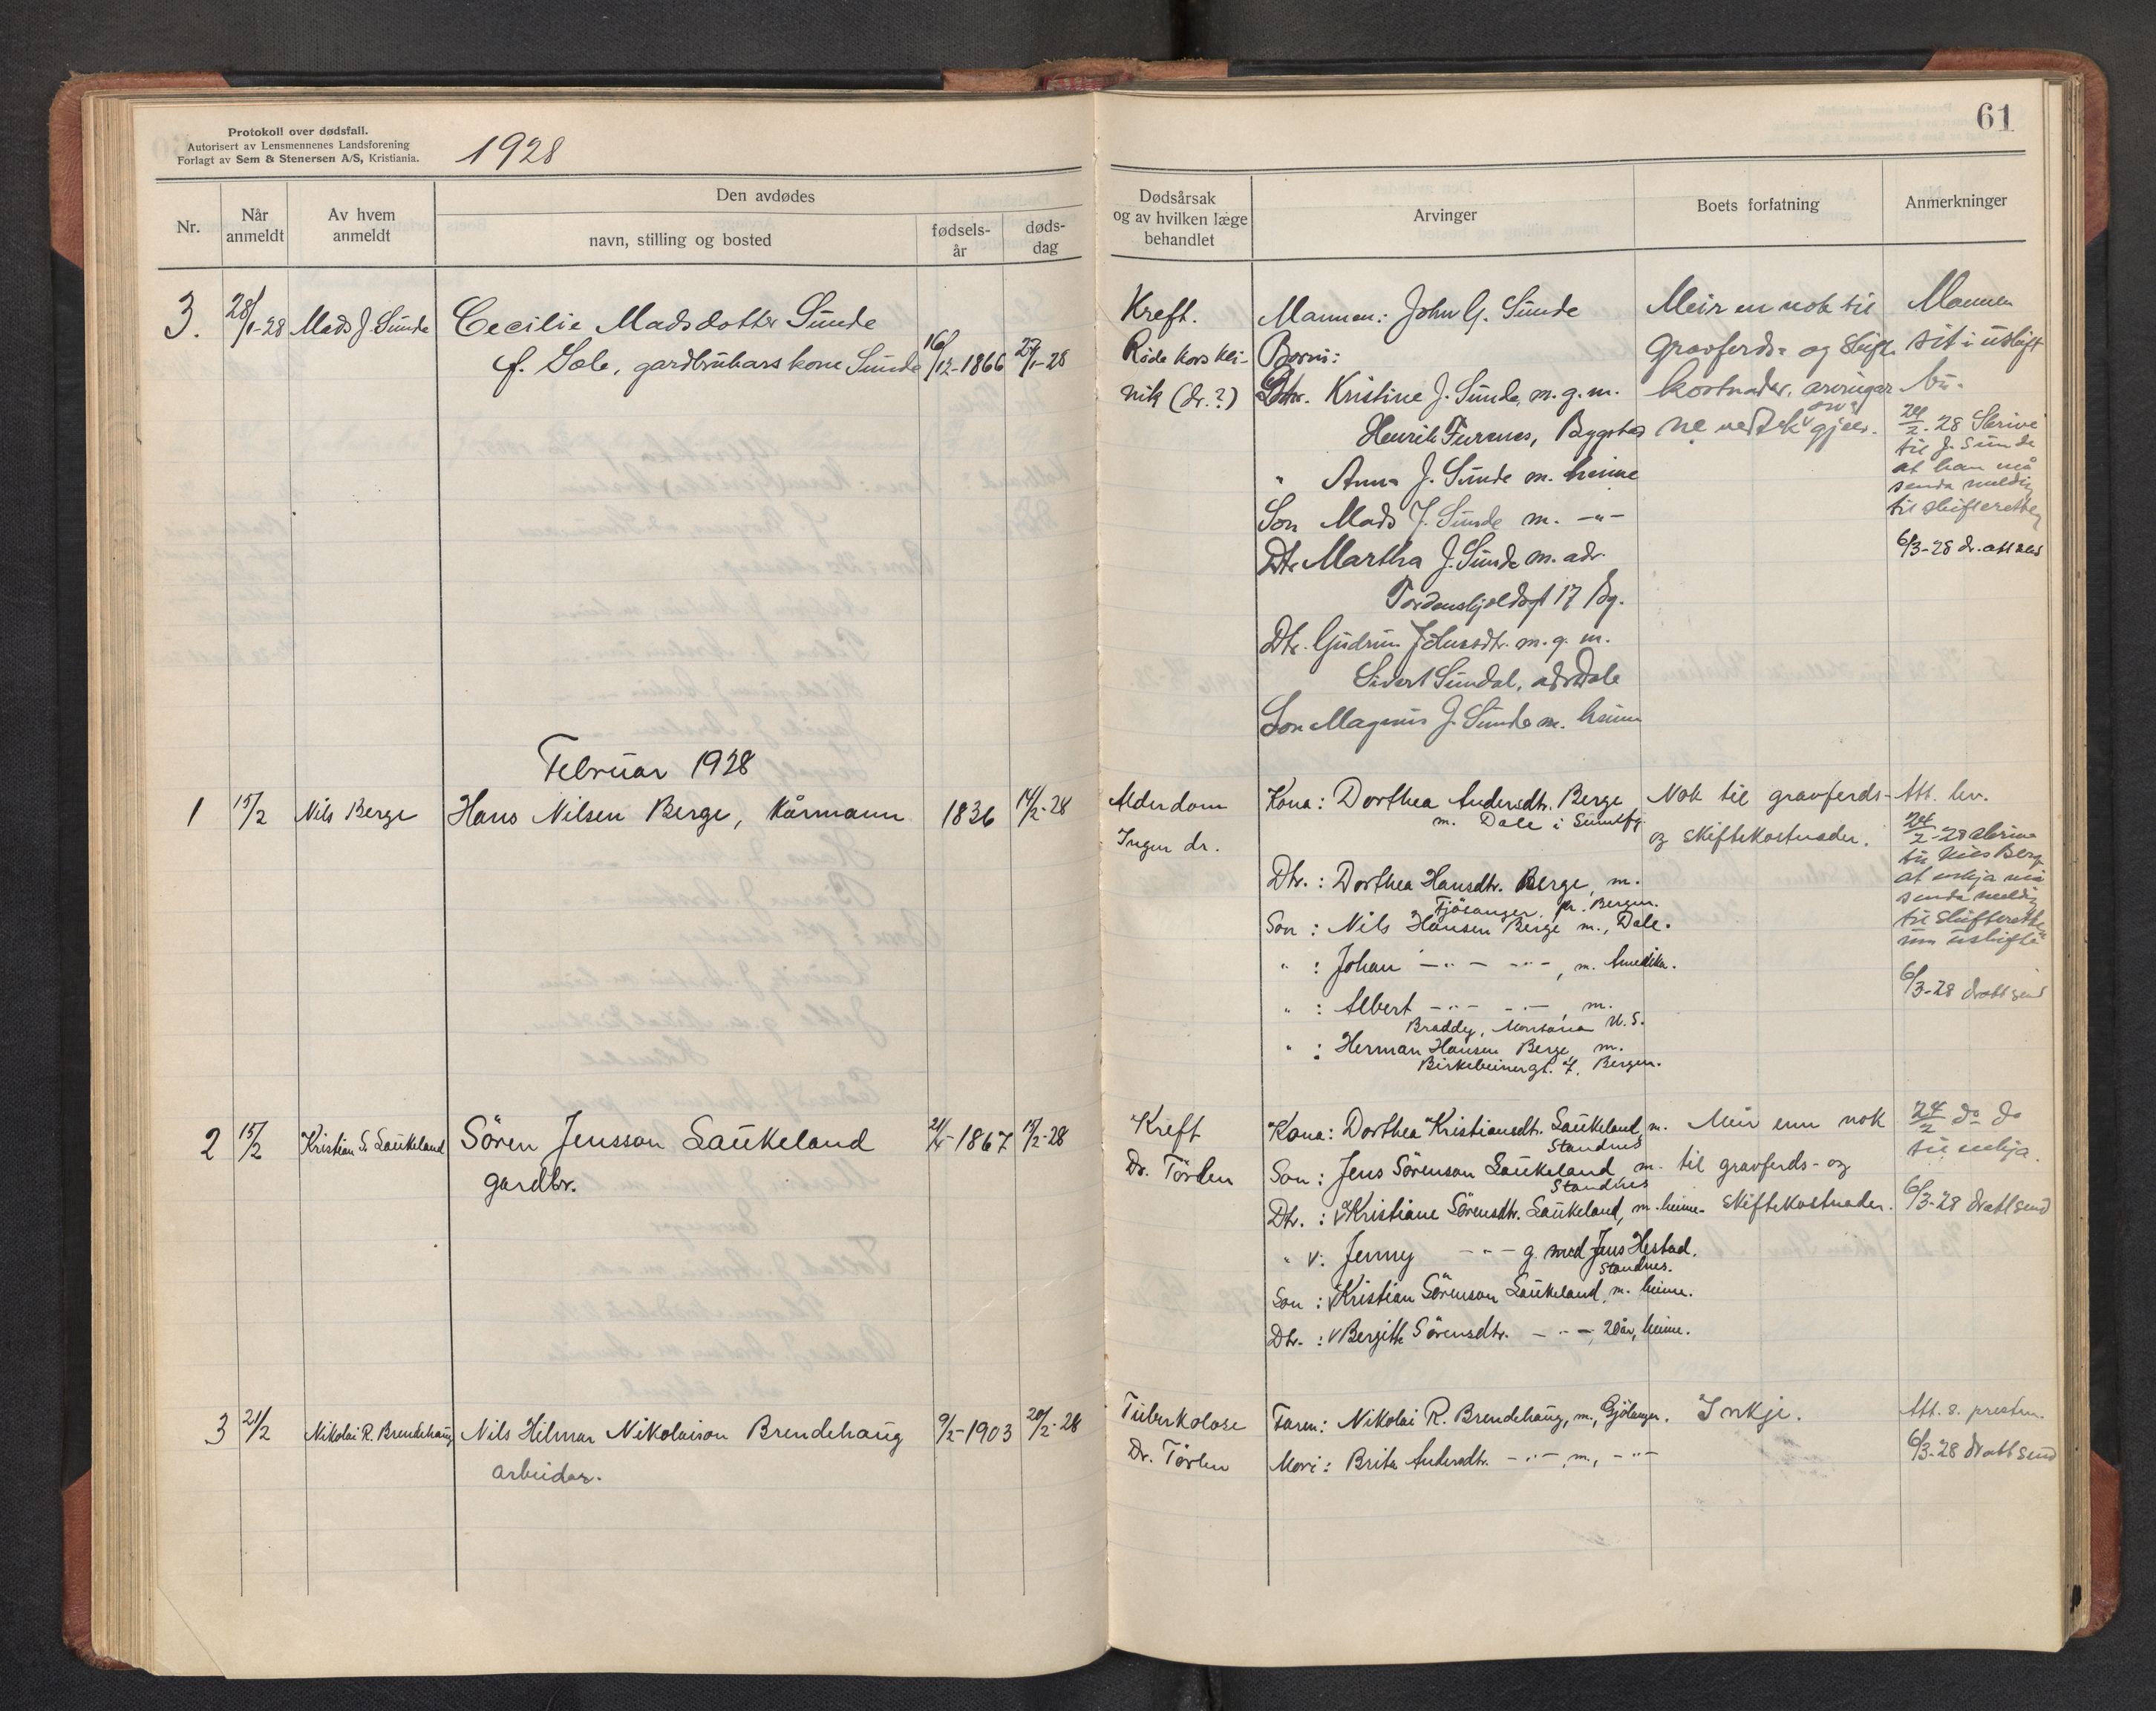 Protokoll over dødsfall.
Autorisert av Lensmennenes Landsforening
Forlagt av Sem & Stenersen A/S, Kristiania.
1928
Nr.
Når
anmeldt
Av hvem
anmeldt
Den avdødes
navn, stilling og bosted
fødsels-
år
døds-
dag
3.
28/1-28
Mads J. Sunde
Cecilie Madsdotter Sunde
f. Sole, gardbrukars kone Sunde
16/12-1866
27/1-28
Februar 1928
1
15/2
Nils Berge
Hans Nilsen Berge, Kårmann
1836
14/2-28
2
15/2
Kristian S. Laukeland
Sören Jensson Laukeland
gardbr.
-1867
/2-28
3
21/2
Nikolai R. Brendehaug
Nils Hilmar Nikolaison Brendehaug
arbeidar.
9/2-1903
20/2-28
61
Dødsårsak
og av hvilken læge
behandlet
Arvinger
Boets forfatning
Anmerkninger
Kreft.
Røde kors kli-
nik (dr.?)
Mannen: John G. Sunde
Born:
Dtr. Kristine J. Sunde, m. g. m.
Henrik Furenes, Bygstad
" Anna J. Sunde m. heime
Son Mads J. Sunde m. -"-
Dtr. Martha J. Sunde m. adr.
Tordenskjoldsgt 17 Bg.
Dtr. Gudrun Johnsdtr. m. g. m.
Sivert Sundal, adr Dale
Son Magnus J. Sunde m. heime
Meir en nok til
gravferds- og skifte
kostnader, arvingar
ne vedtek gjeld.
Mannen
sit i uskift
bu.
24/2-28 Skrive
til J. Sunde
at han må
senda melding
til skifteretten
6/3-28 dr. att send
Alderdom
Ingen dr.
Kona: Dorthea Andersdtr. Berge
m. Dale i Sunnfj.
Dtr.: Dorthea Hansdtr. Berge, m.
Fjösanger pr. Bergen.
Son: Nils Hansen Berge m., Dale.
" : Johan -"- -"-, m. Amerika.
" : Albert -"- -"-, m.
Braddy, Montana U.S.
" : Herman Hansen Berge m.
Birkebeinergt. 7, Bergen.
Nok til gravferds-
og skiftekostnader.
Att. lev.
24/2-28 skrive
til Nils Berge
at enkja må
senda melding
til skifteretten
um uskifte
6/3-28 dr att send
Kreft
Dr. Törlen
Kona: Dorthea Kristiansdtr. Laukeland, m.
Standnes
Son: Jens Sörenson Laukeland m.
Standnes
Dtr.: v Kristiane Sörensdtr. Laukeland, m. heime.
" v: Jenny -"- g. med Jens Hestad.
Standnes.
Son: v Kristian Sörenson Laukeland, m. heime.
Dtr.: v Bergitte Sörensdtr. -"-, 20 år, heime.
Meir enn nok
til gravferds- og
skiftekostnader.
24/2 do do
til enkja.
6/3-28 dr att send
Tuberkolose
Dr. Törlen
Faren: Nikolai R. Brendehaug, m., Gjölanger.
Mori: Brita Andersdtr. -"-, m., -"-
Inkje.
Att. s. presten.
6/3-28 dr att send